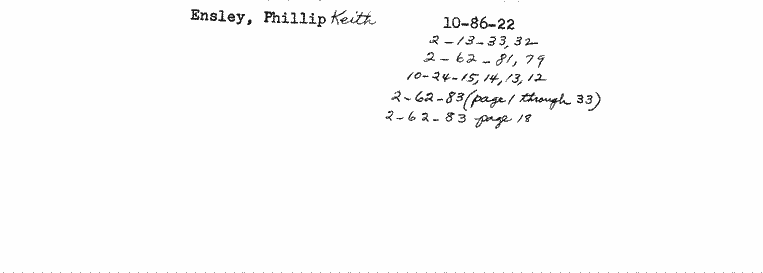 Ensley, Phillip Keith 10-86-22
2-13-33, 32
2-62-81, 79
10-24-15, 14, 13, 12
2-62-83 (page 1 through 33)
2-62-83 page 18